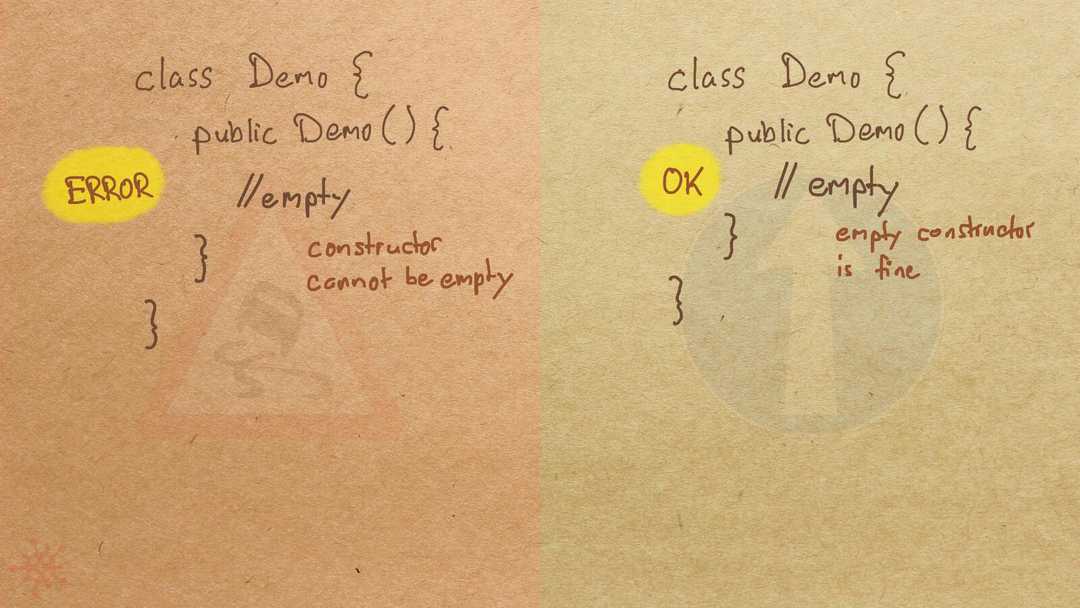 class Demo {
public Demo() {
ERROR
//empty
}
constructor
cannot be empty
}
class Demo {
public Demo() {
OK
// empty
}
empty constructor
is fine
}